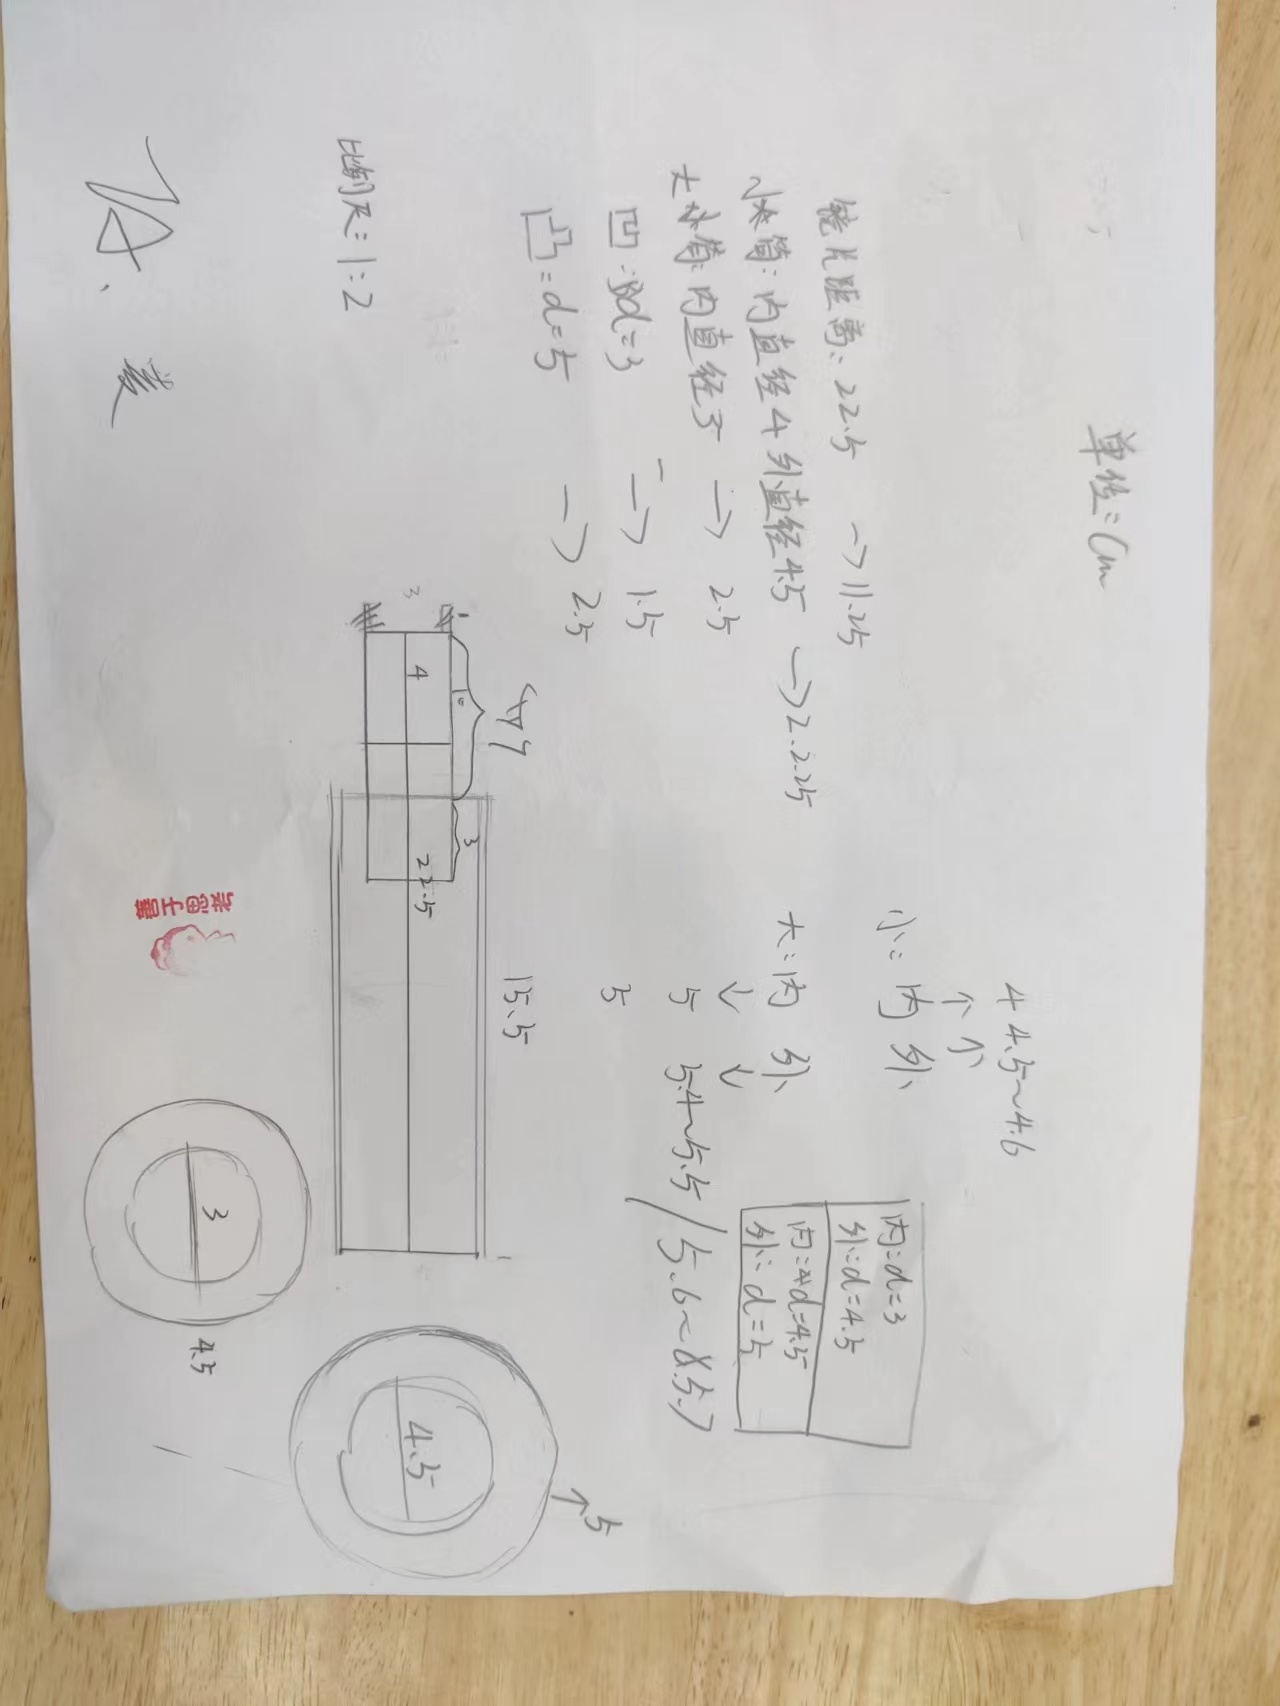 单位：Cm
镜片距离：22.5 →11.25
小水筒：内直径4 外直径4.5 →2.2.25
大水筒：内直径5 → 2.5
凹：d=3 → 1.5
凸：d=5 → 2.5
比例尺：1:2
4 4.5~4.6
↑ ↑
小：内 外
大：内 外
↓ ↓
5 5.4~5.5/5.6~5.7
5
内：d=3
外：d=4.5
内：d=4.5
外：d=5
3
4
7
3
22.5
15.5
3
4.5
4.5
↑5